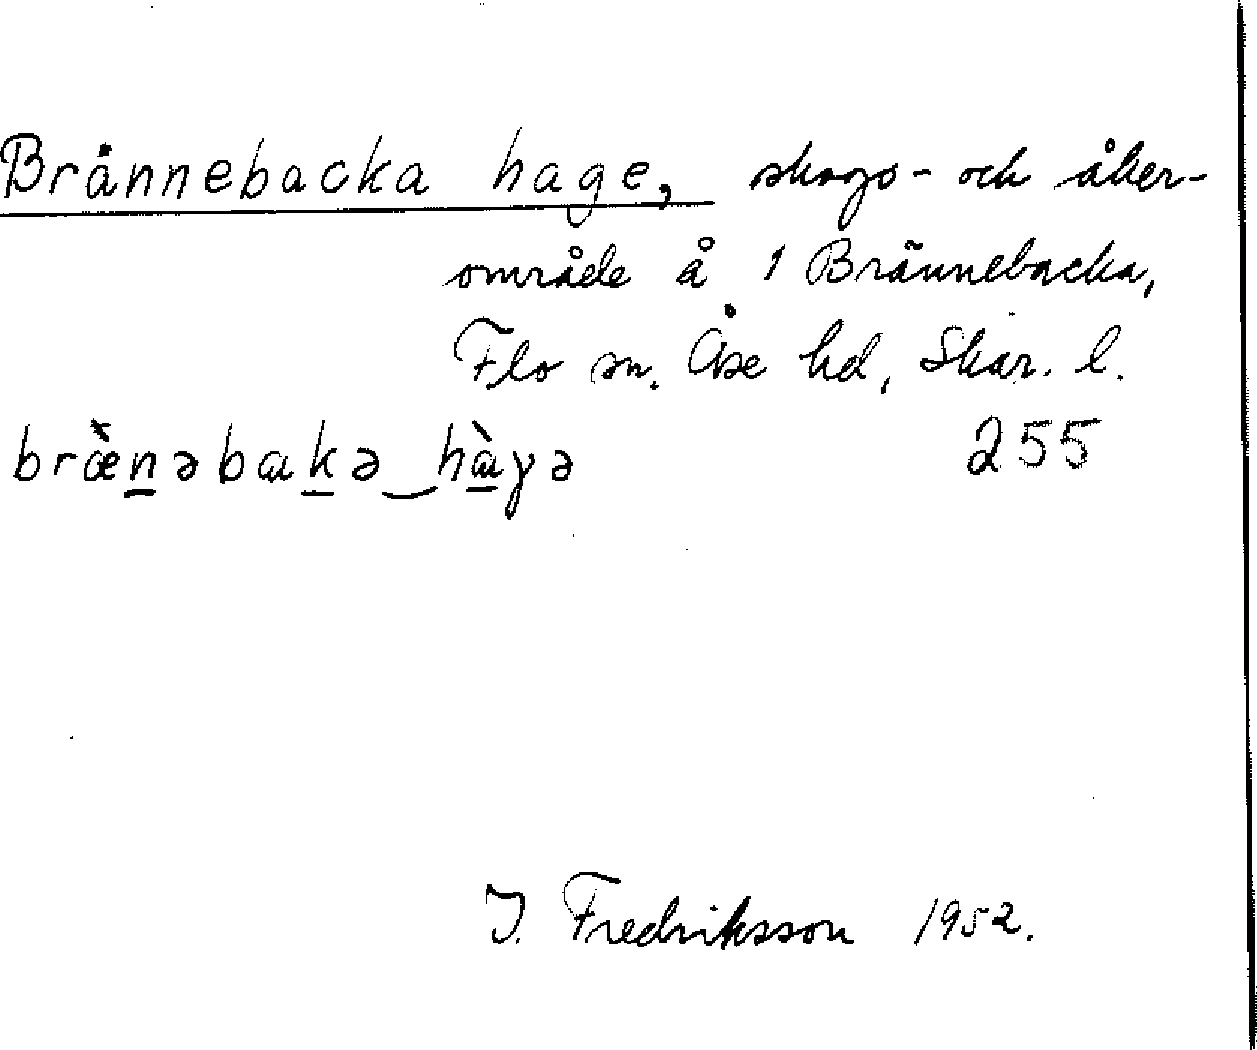 Brännebacka hage, skogs- och åker-
område å 1 Brännebacka,
Flo sn. Åse hd, Skar. l.
bræ̀n̲əbɑk̲ə‿hɑ̲̀γə 255
I. Fredriksson 1952.